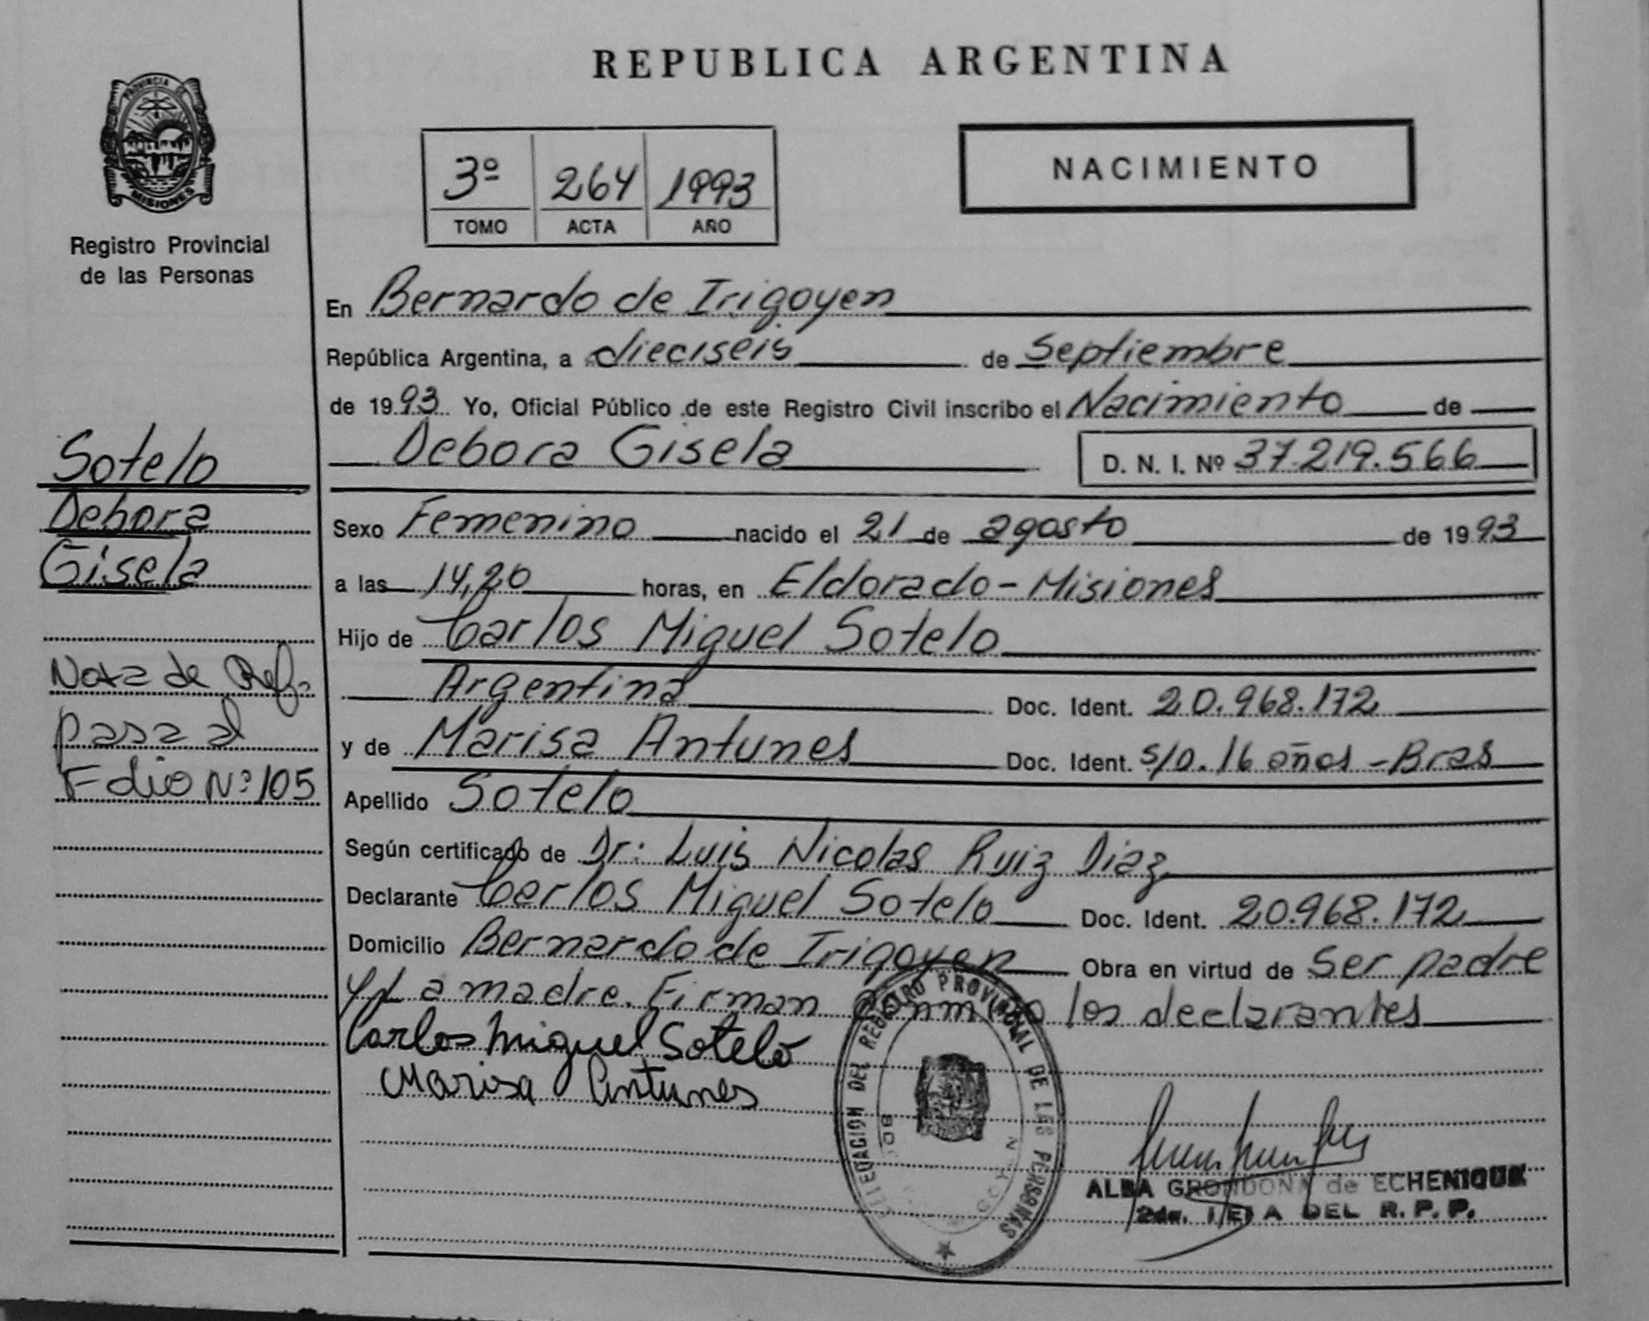 REPUBLICA ARGENTINA
PROVINCIA DE
MISIONES
Registro Provincial
de las Personas
3º 264 1993
TOMO ACTA AÑO
NACIMIENTO
En Bernardo de Irigoyen
República Argentina, a dieciseis de Septiembre
de 1993 Yo, Oficial Público de este Registro Civil inscribo el Nacimiento de
Debora Gisela D. N. I. Nº 37.219.566
Sexo Femenino nacido el 21 de agosto de 1993
a las 14,20 horas, en Eldorado - Misiones
Hijo de Carlos Miguel Sotelo
Argentina Doc. Ident. 20.968.172
y de Marisa Antunes Doc. Ident. s/D. 16 años - Bras
Apellido Sotelo
Según certificado de Dr: Luis Nicolas Ruiz Diaz
Declarante Carlos Miguel Sotelo Doc. Ident. 20.968.172
Domicilio Bernardo de Irigoyen Obra en virtud de Ser padre
madre. Firman los declarantes
Carlos Miguel Sotelo
Marisa Antunes
Sotelo
Debora
Gisela
Nota de Ref.
pasa al
Folio Nº 105
DEL REGISTRO PROVINCIAL DE LAS PERSONAS
ALBA GRONDONA de ECHENIQUE
DEL R. P. P.